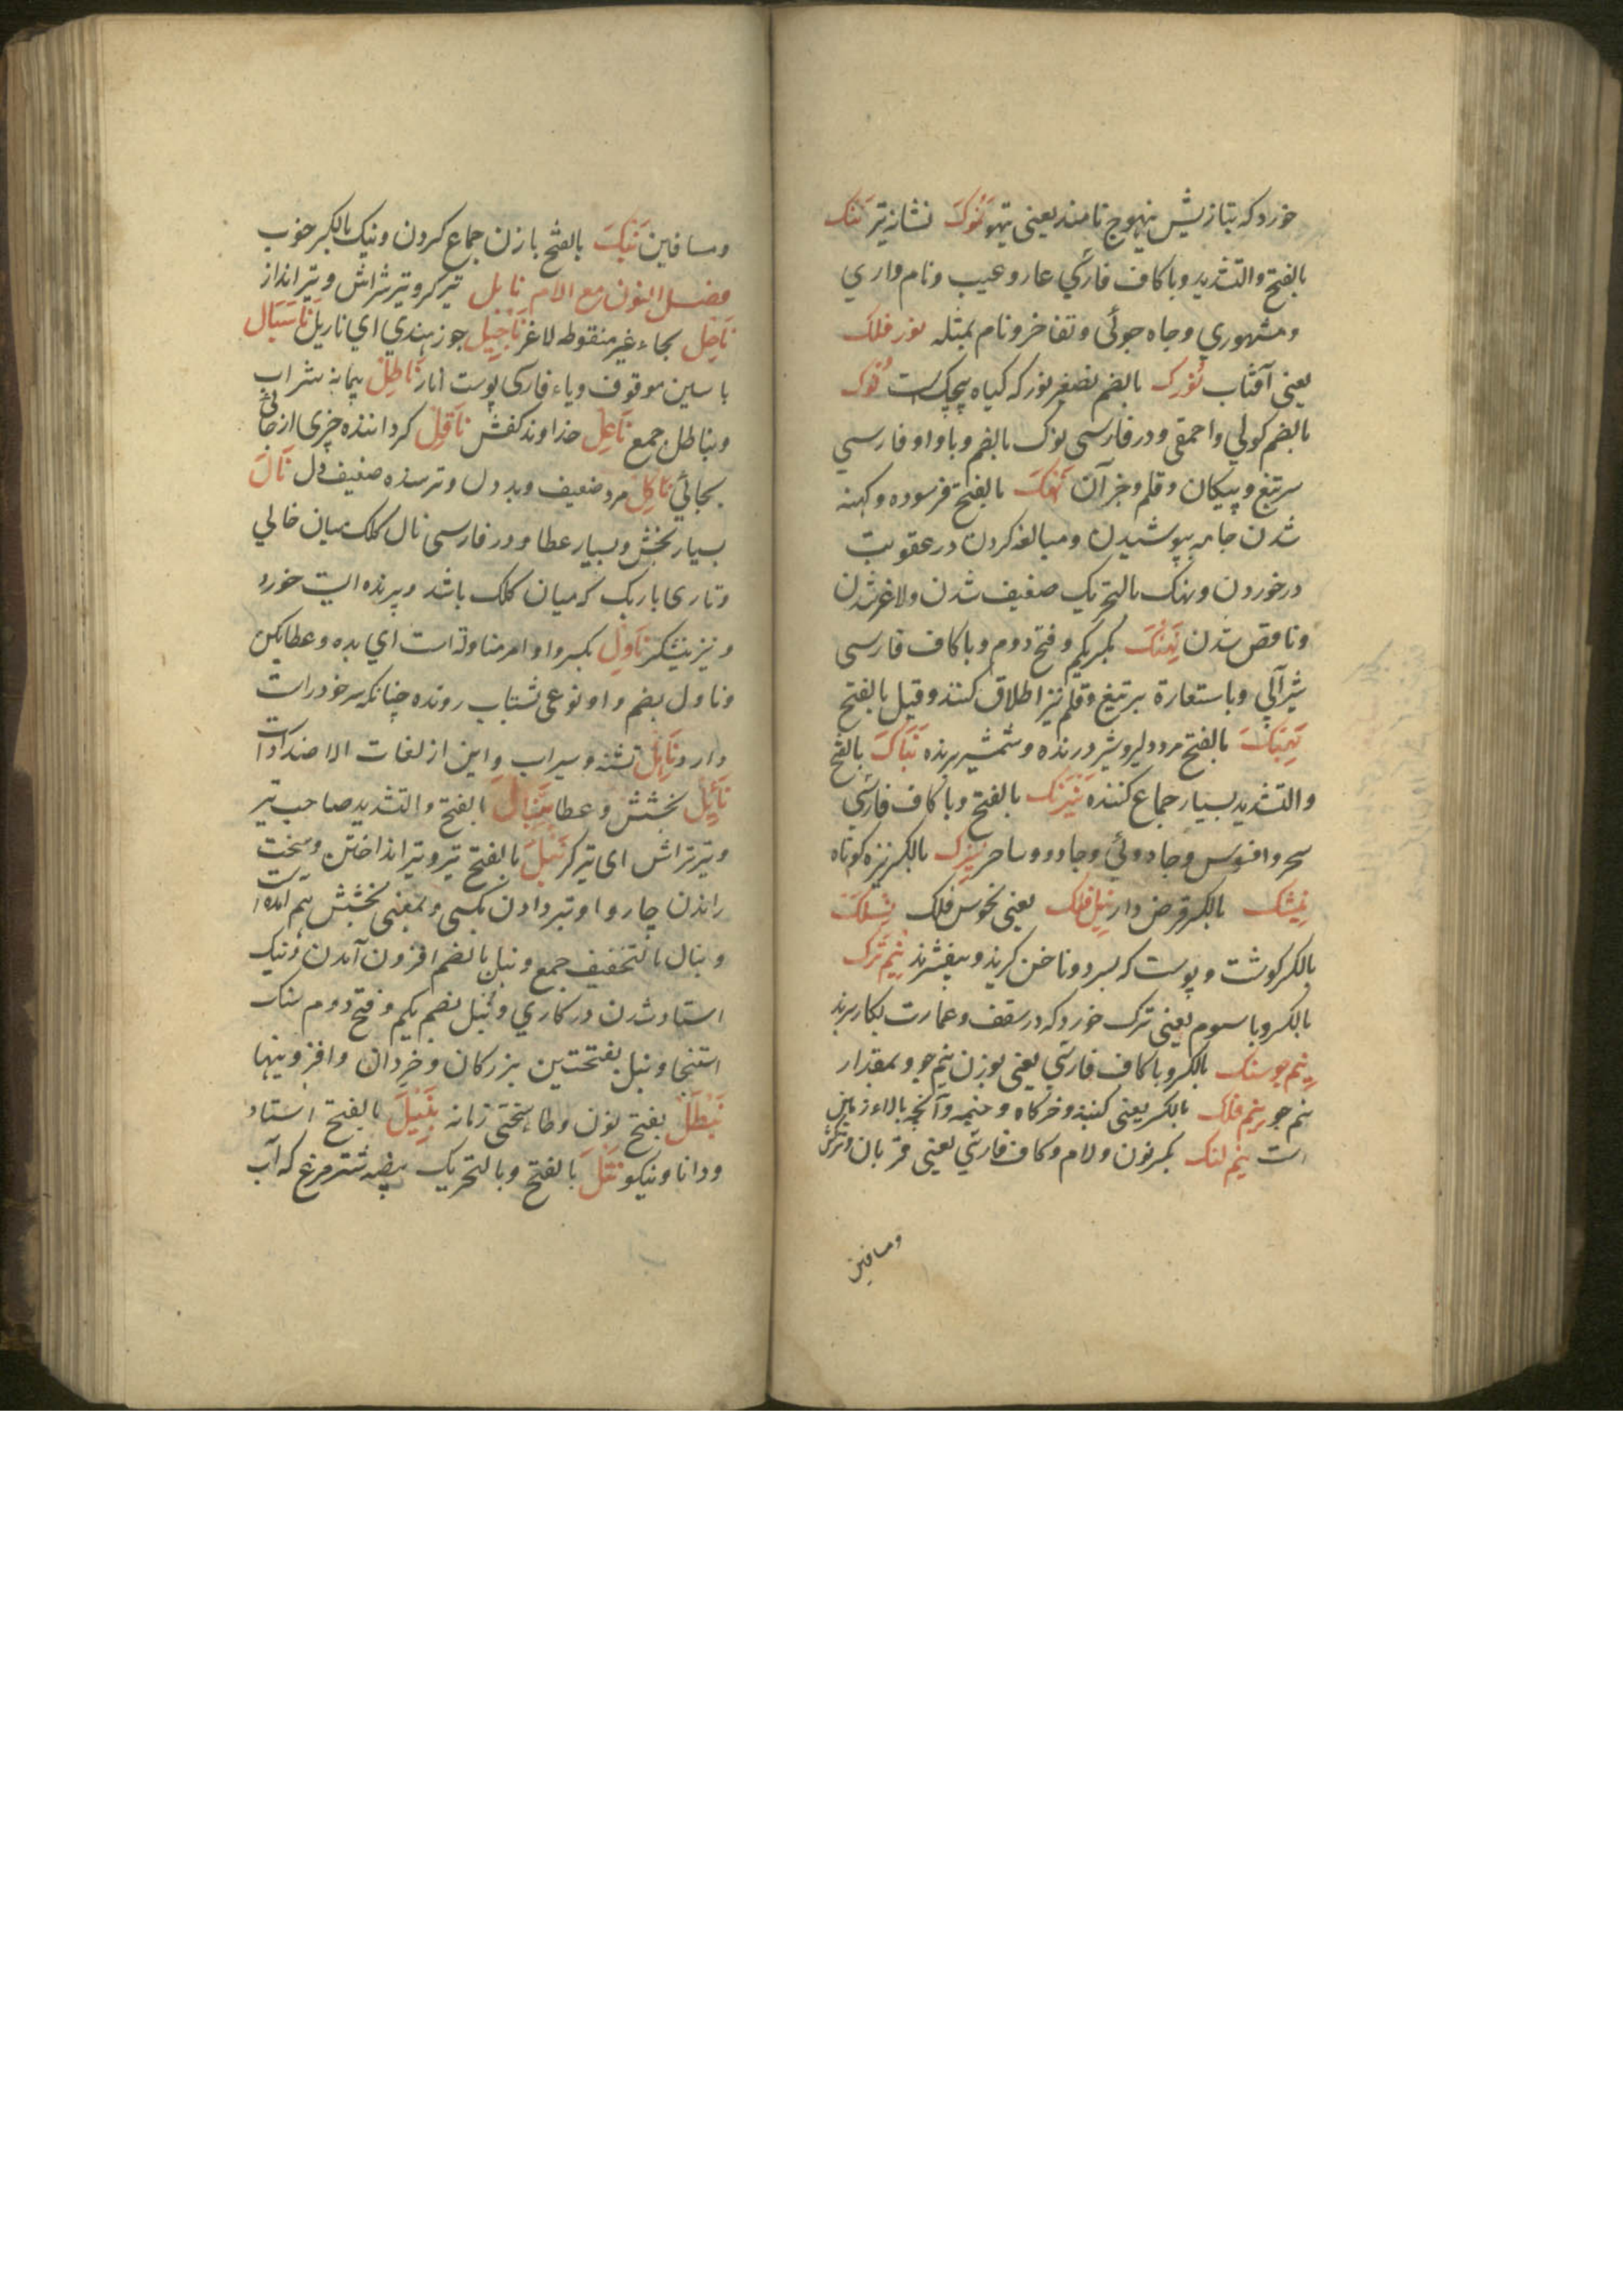 خورد که بتازیش نیهوج نامند یعنی تیهو نوک نشانه تیر ننک
بالفتح والتشدید وبا کاف فارسی عار وعیب ونام واری
ومشهوری وجاه جوئی وتفاخر ونام بمثله نور فلک
یعنی آفتاب نورک بالضم تصغیر نور که کیاه پیچک است نوک
بالضم کولی واحمقی ودر فارسی نوک بالضم وبا واو فارسی
سر تیغ وپیکان وقلم وجز آن نهک بالفتح فرسوده وکهنه
شدن جامه بپوشیدن ومبالغه کردن در عقوبت
در خوردن ونهک بالتحریک ضعیف شدن ولاغر شدن
وناقص شدن نهنک بکسر یکم وفتح دوم وبا کاف فارسی
شیر آبی وباستعارة بر تیغ وقلم نیز اطلاق کنند وقیل بالفتح
نهیک بالفتح مرد دلیر وشیر درنده وشمشیر برنده نیاک بالفتح
والتشدید بسیار جماع کننده نیرنک بالفتح وبا کاف فارسی
سحر وافسوس وجادوئی وجادو وساحر نیزک بالکسر نیزه کوتاه
نیشک بالکسر قرض دار نیل فلک یعنی نحوس فلک نیشلک
بالکسر کوشت وپوست که بسر دو ناخن کیرند وبیفشرند نیم ترک
بالکسر وبا سوم یعنی ترک خورد که در سقف وعمارت بکار برند
نیم جو سنک بالکسر وبا کاف فارسی یعنی بوزن نیم جو وبمقدار
نیم جو نیم فلک بالکسر یعنی کنبذ وخرکاه وخیمه وآنچه بالاء زمین
است نیم لنک بکسر نون ولام وکاف فارسی یعنی قربان وترکش
ومسافین
ومسافین نیک بالفتح با زن جماع کردن ونیک بالکسر خوب
فصل النون مع اللام نابل تیرکر وتیرتراش وتیرانداز
ناحل بحاء غیر منقوطه لاغر ناجیل جوز هندی ای ناریل ناسپال
با سین موقوف وباء فارسی پوست انار ناطل پیمانه شراب
ونیاطل جمع ناعل خداوند کفش ناقل کرداننده چیزی از جائی
بجائی ناکل مرد ضعیف وبد دل وترسنده ضعیف دل نال
بسیار بخش وبسیار عطا ودر فارسی نال کلک میان خالی
وتاری باریک که میان کلک باشد وپرنده ایست خورد
ونیز نیشکر ناول بکسر واو امر مناوله است ای بده وعطا بکن
وناول بضم واو نوعی شتاب رونده چنانکه سر خود راست
دارد ناهل تشنه وسیراب واین از لغات الاضداد است
نائل بخشش وعطا نبال بالفتح والتشدید صاحب تیر
وتیرتراش ای تیرکر نبل بالفتح تیر وتیر انداختن وسخت
راندن چاروا وتیر دادن بکسی وبمعنی بخشش هم آمده است
ونبال بالتخفیف جمع ونبل بالضم افزون آمدن ونیک
استاد شدن در کاری ونبل بضم یکم وفتح دوم سنک
استنجا ونبل بفتحتین بزرکان وخردان وافزونیها
نیطل بفتح نون وطاء سختی زمانه نبیل بالفتح استاد
ودانا ونیکو نثل بالفتح وبالتحریک بیضه شتر مرغ که آب